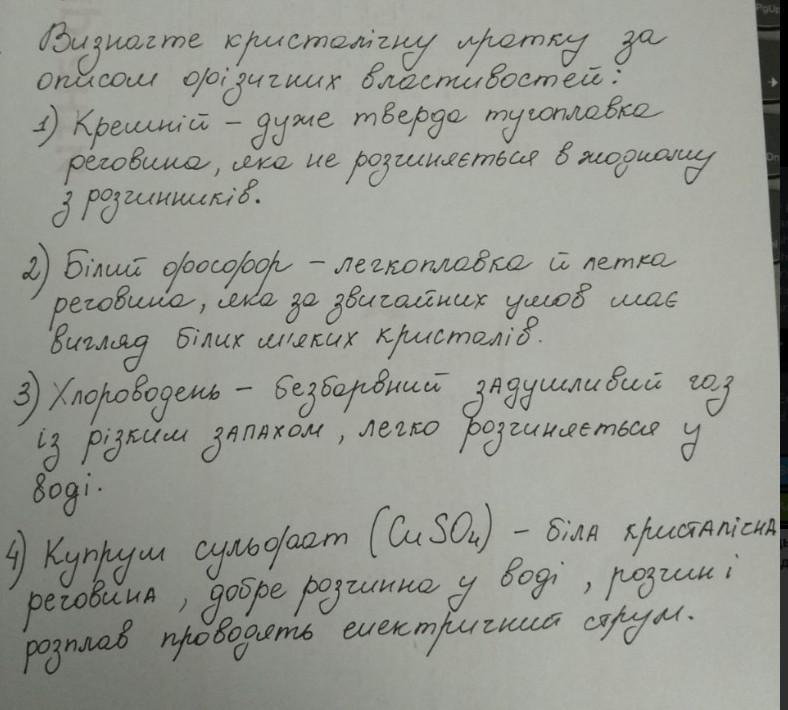 Визначте кристалічну ґратку за
описом фізичних властивостей:
1) Кремній – дуже тверда тугоплавка
речовина, яка не розчиняється в жодному
з розчинників.
2) Білий фосфор – легкоплавка й летка
речовина, яка за звичайних умов має
вигляд білих м'яких кристалів.
3) Хлороводень – безбарвний задушливий газ
із різким запахом, легко розчиняється у
воді.
4) Купрум сульфат (CuSO4) – біла кристалічна
речовина, добре розчинна у воді, розчин і
розплав проводять електричний струм.